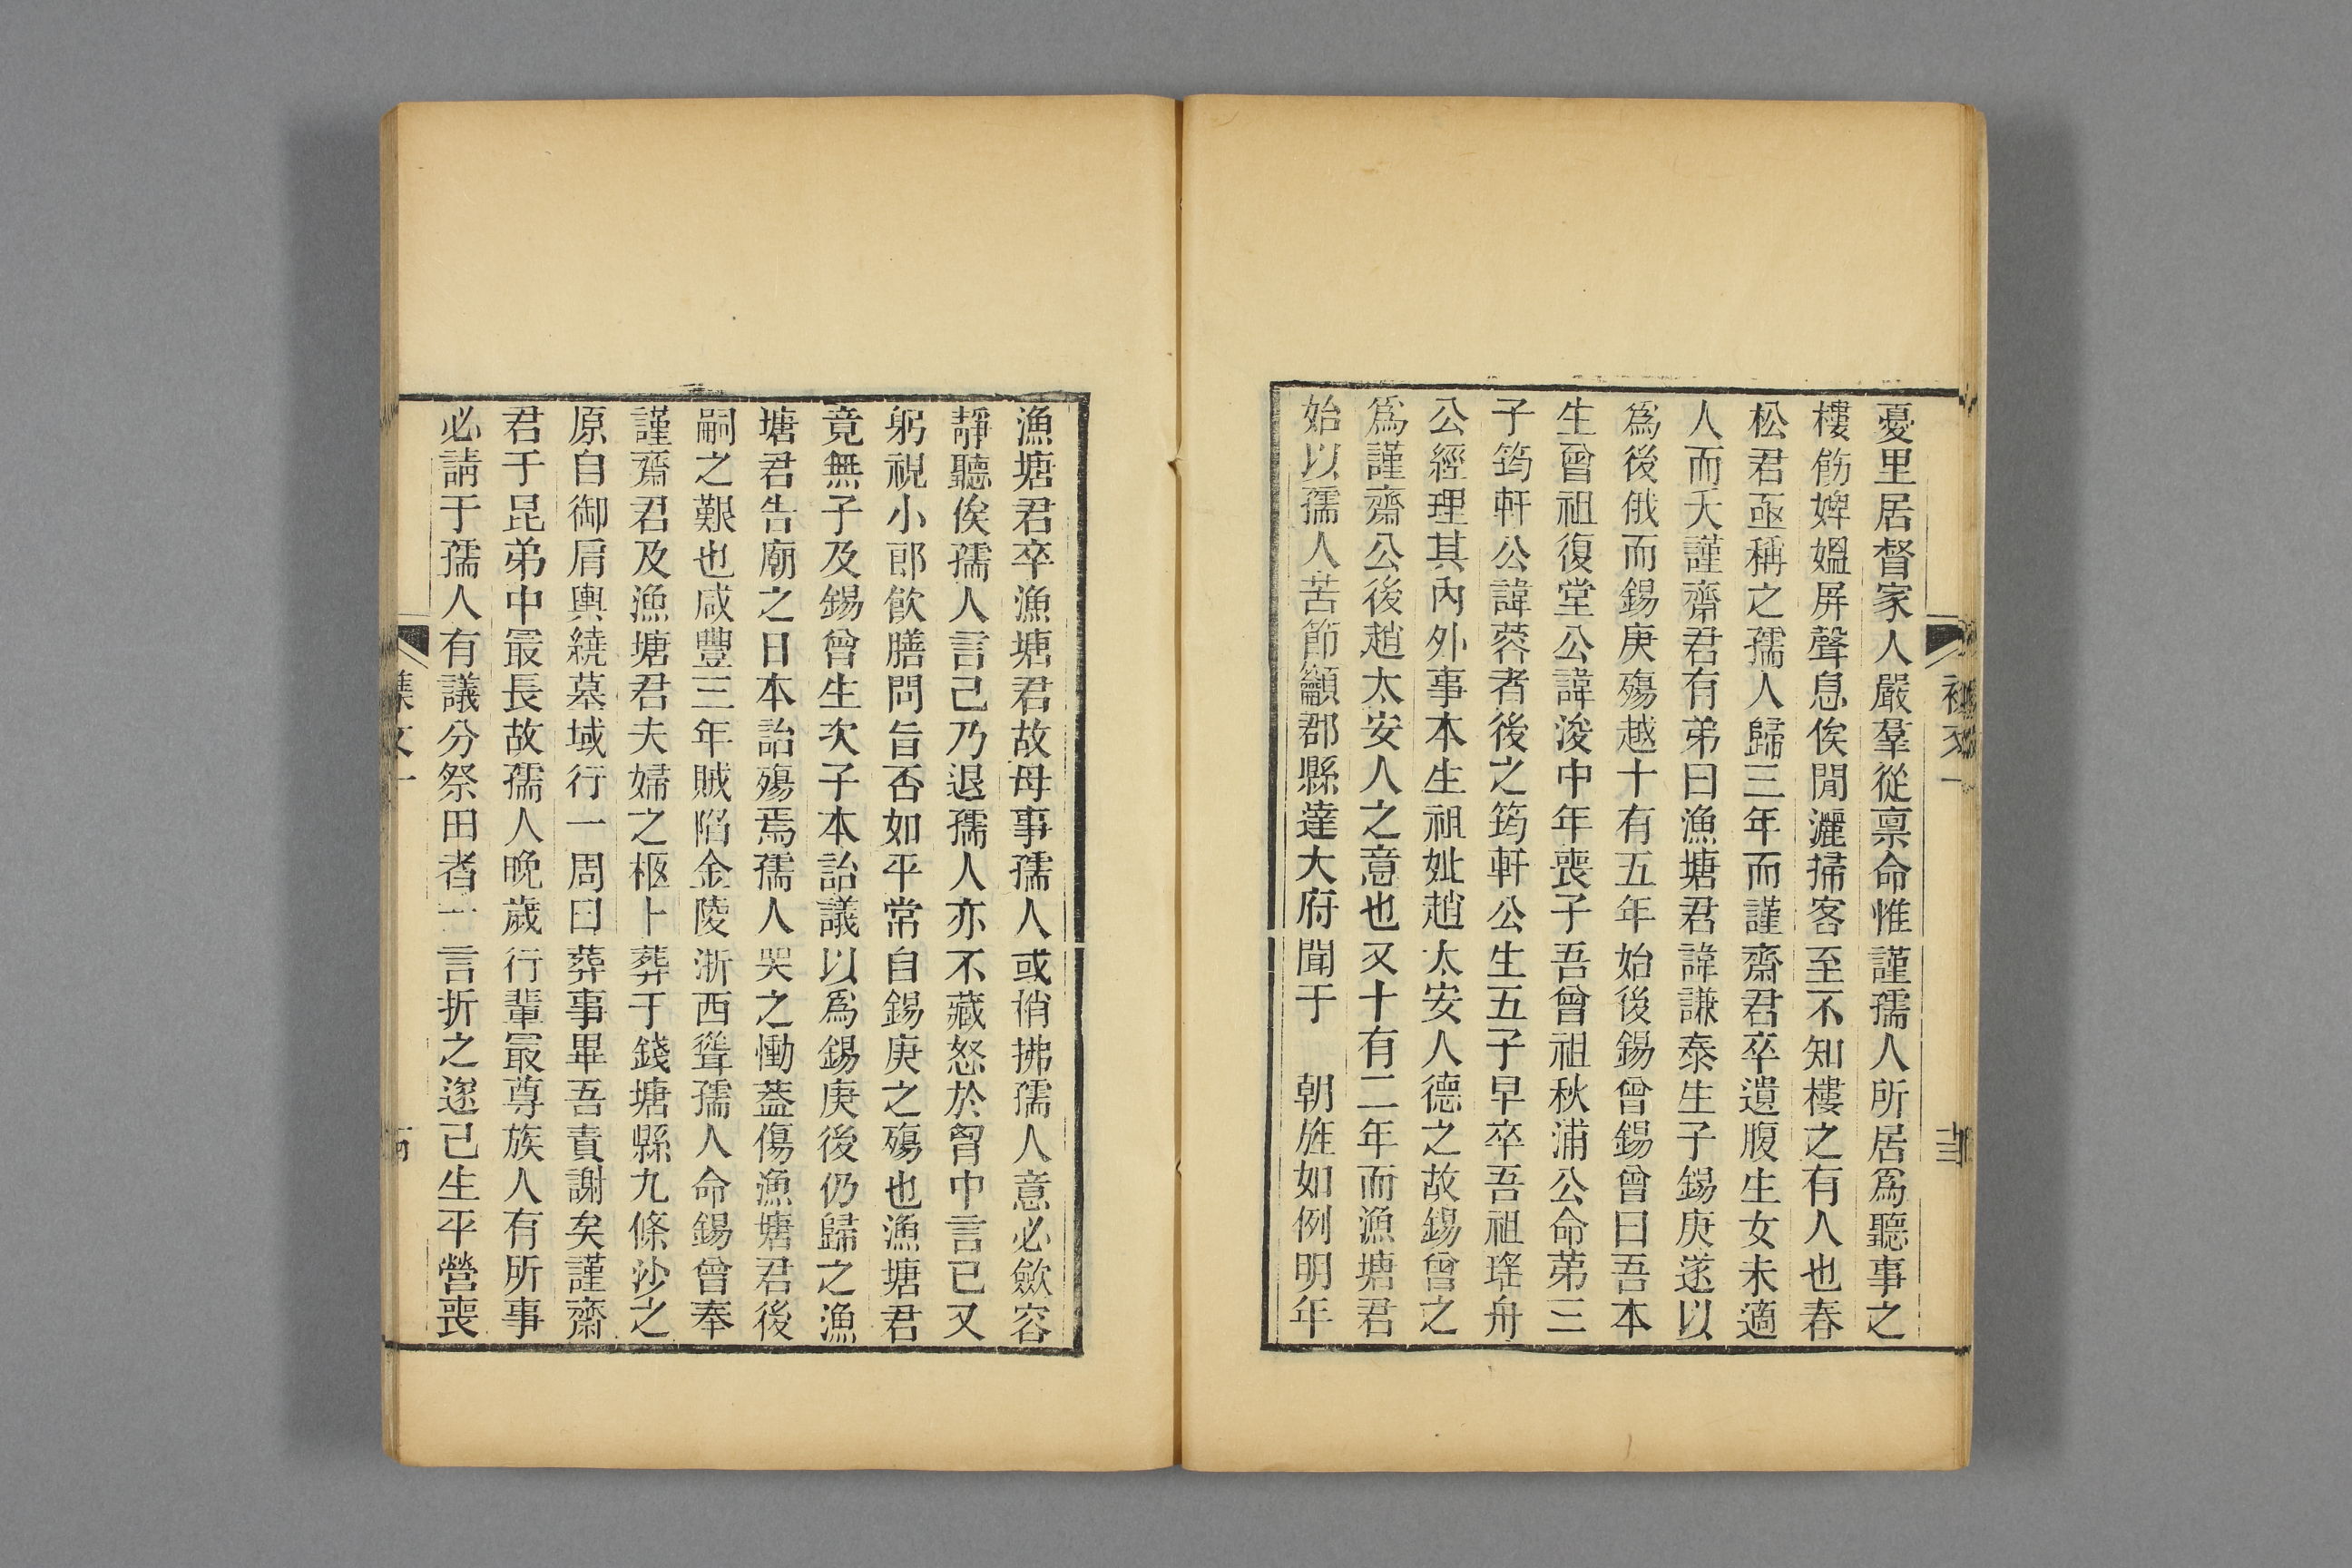 憂里居督家人嚴羣從禀命惟謹孺人所居爲聽事之
樓飭婢媼屏聲息俟閒灑掃客至不知樓之有人也春
松君亟稱之孺人歸三年而謹齋君卒遺腹生女未適
人而夭謹齋君有弟曰漁塘君諱謙泰生子錫庚遂以
爲後俄而錫庚殤越十有五年始後錫曾錫曾曰吾本
生曾祖復堂公諱浚中年喪子吾曾祖秋浦公命弟三
子筠軒公諱蓉者後之筠軒公生五子早卒吾祖瑤舟
公經理其內外事本生祖妣趙太安人德之故錫曾之
爲謹齋公後趙太安人之意也又十有二年而漁塘君
始以孺人苦節籲郡縣達大府聞于　朝旌如例明年
漁塘君卒漁塘君故母事孺人或稍拂孺人意必斂容
靜聽俟孺人言已乃退孺人亦不藏怒於胷中言已又
躬視小郎飮膳問旨否如平常自錫庚之殤也漁塘君
竟無子及錫曾生次子本詒議以爲錫庚後仍歸之漁
塘君告廟之日本詒殤焉孺人哭之慟葢傷漁塘君後
嗣之艱也咸豐三年賊陷金陵浙西聳孺人命錫曾奉
謹齋君及漁塘君夫婦之柩卜葬于錢塘縣九條沙之
原自御肩輿繞墓域行一周曰葬事畢吾責謝矣謹齋
君于昆弟中最長故孺人晩歲行輩最尊族人有所事
必請于孺人有議分祭田者一言折之遂已生平營喪